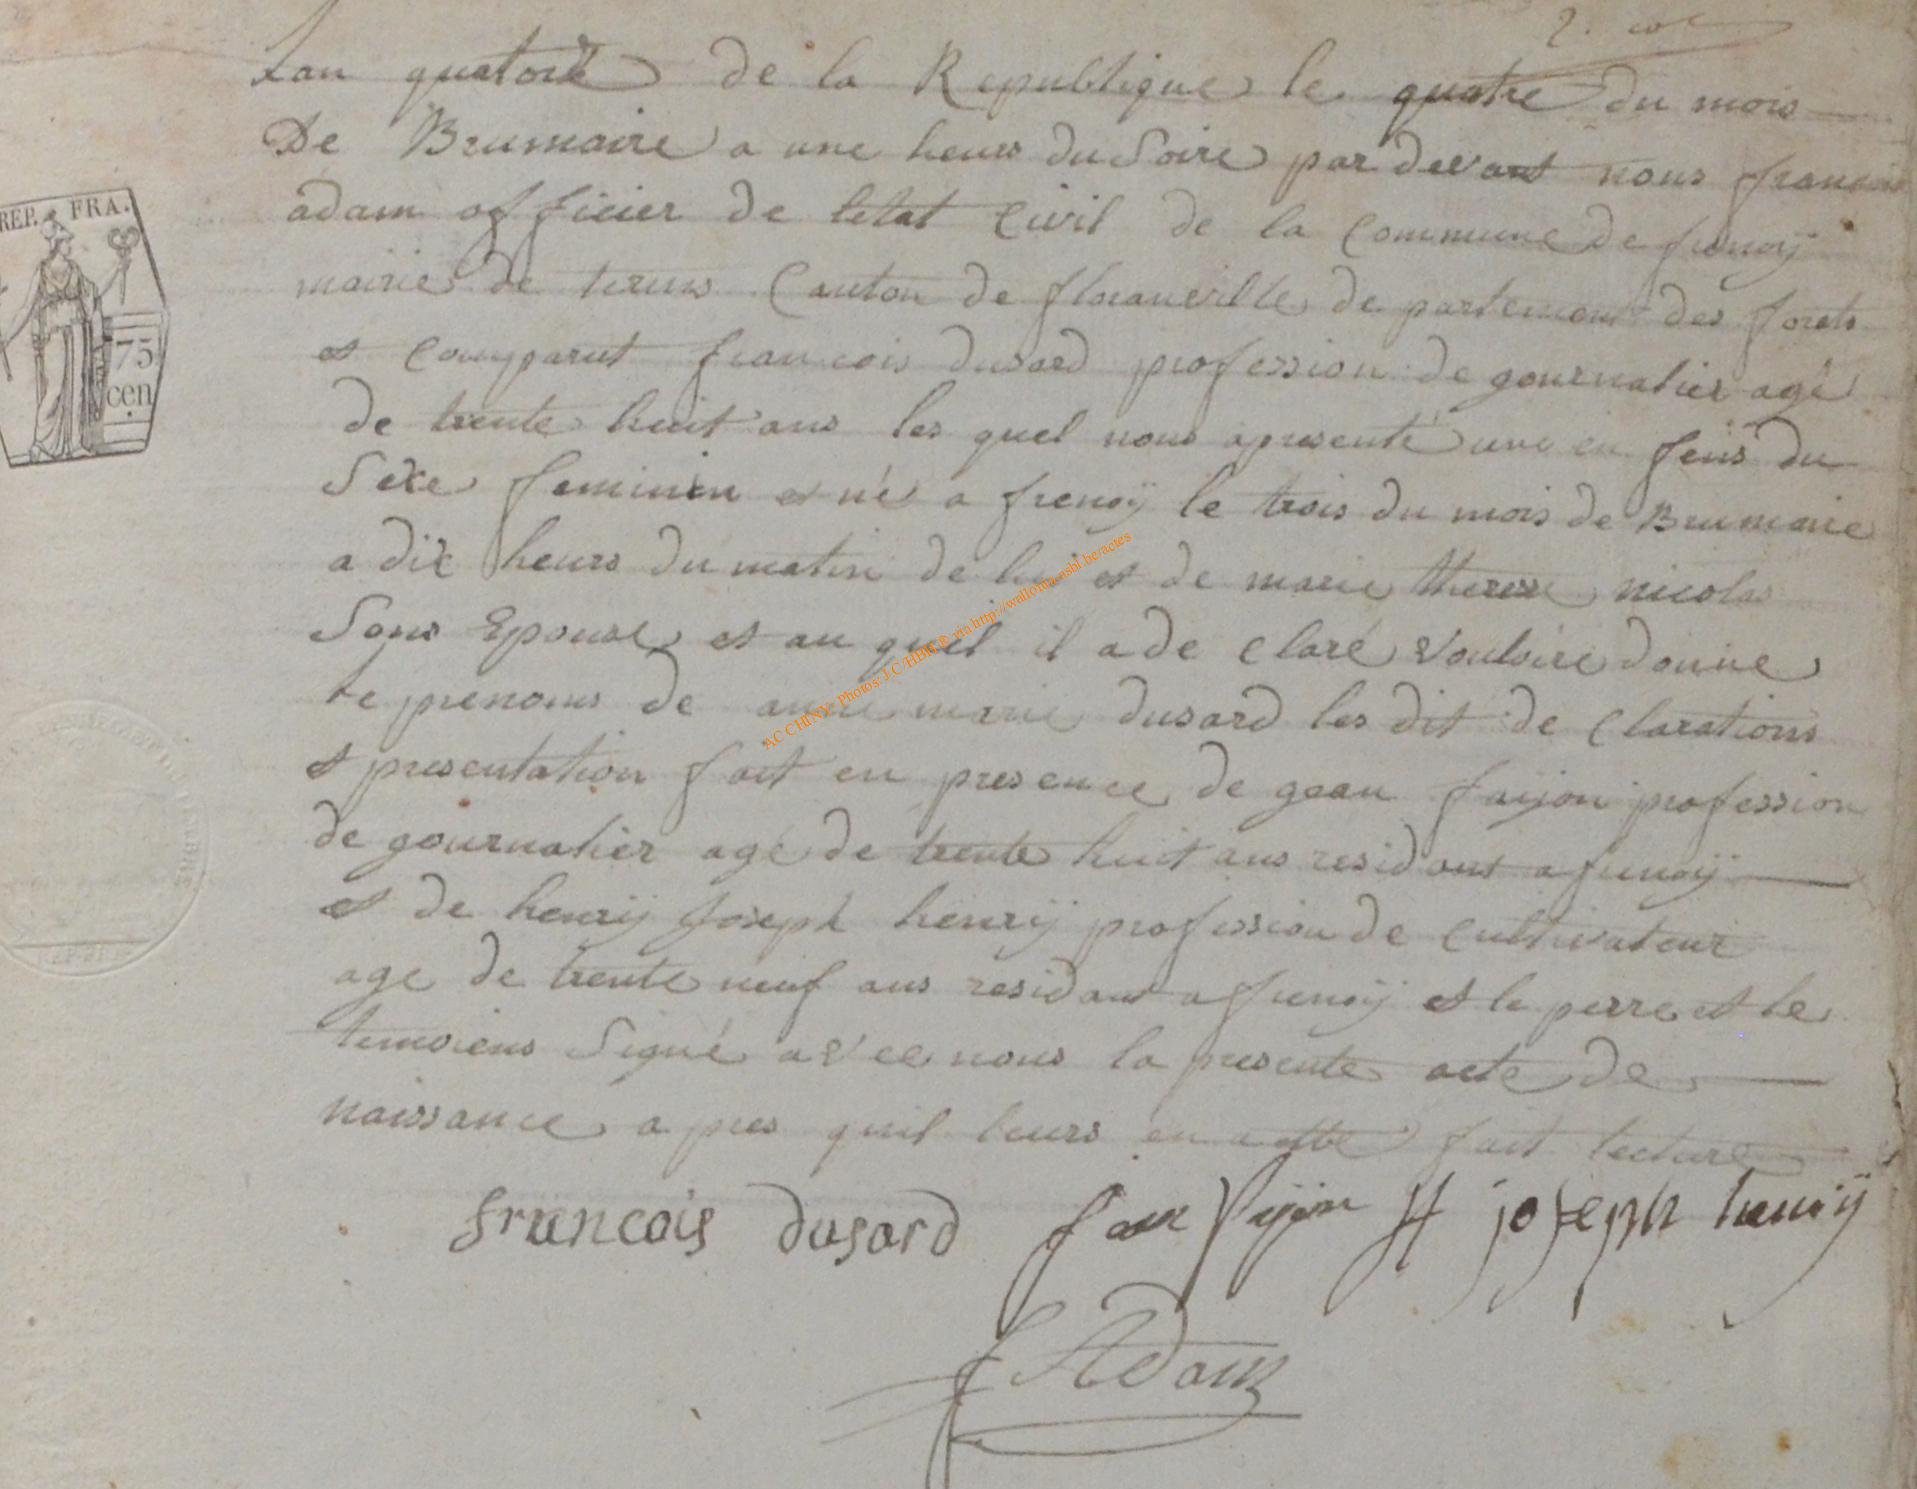 2. col
Lan quatorze de la Republique le quatre du mois
De Brumaire a une heurs du Soire par devant nous francois
adam officier de letat Civil de la Commune de frenoÿ
mairie de termes Canton de floranville de partement des forets
et Comparut francois dusard profession de gournalier agé
de trente huit ans les quel nous apresenté une en fens du
Sexe feminin et né a frenoÿ le trois du mois de Brumaire
a dix heurs du matin de lui et de marie therese nicolas
Sons Epouse et au quel il a de claré Vouloire donne
le prenoms de anne marie dusard les dit de clarations
et presentation fait en presence de gean faijon profession
de gournalier agé de trente huit ans residant a frenoÿ
et de henrÿ Joseph henrÿ profession de Cultivateur
age de trente neuf ans residant a frenoÿ et le perre et le
temoiens Signé avee nous la presente acte de
naissance a pres quil leurs en a ette fait lecture
francois dusard Jean faijon H joseph henrÿ
f Adam
REP. FRA.
75
cen.
REP. FRA.
AC CHINY- Photos: J.C HBH® via http://wallonia-asbl.be/actes